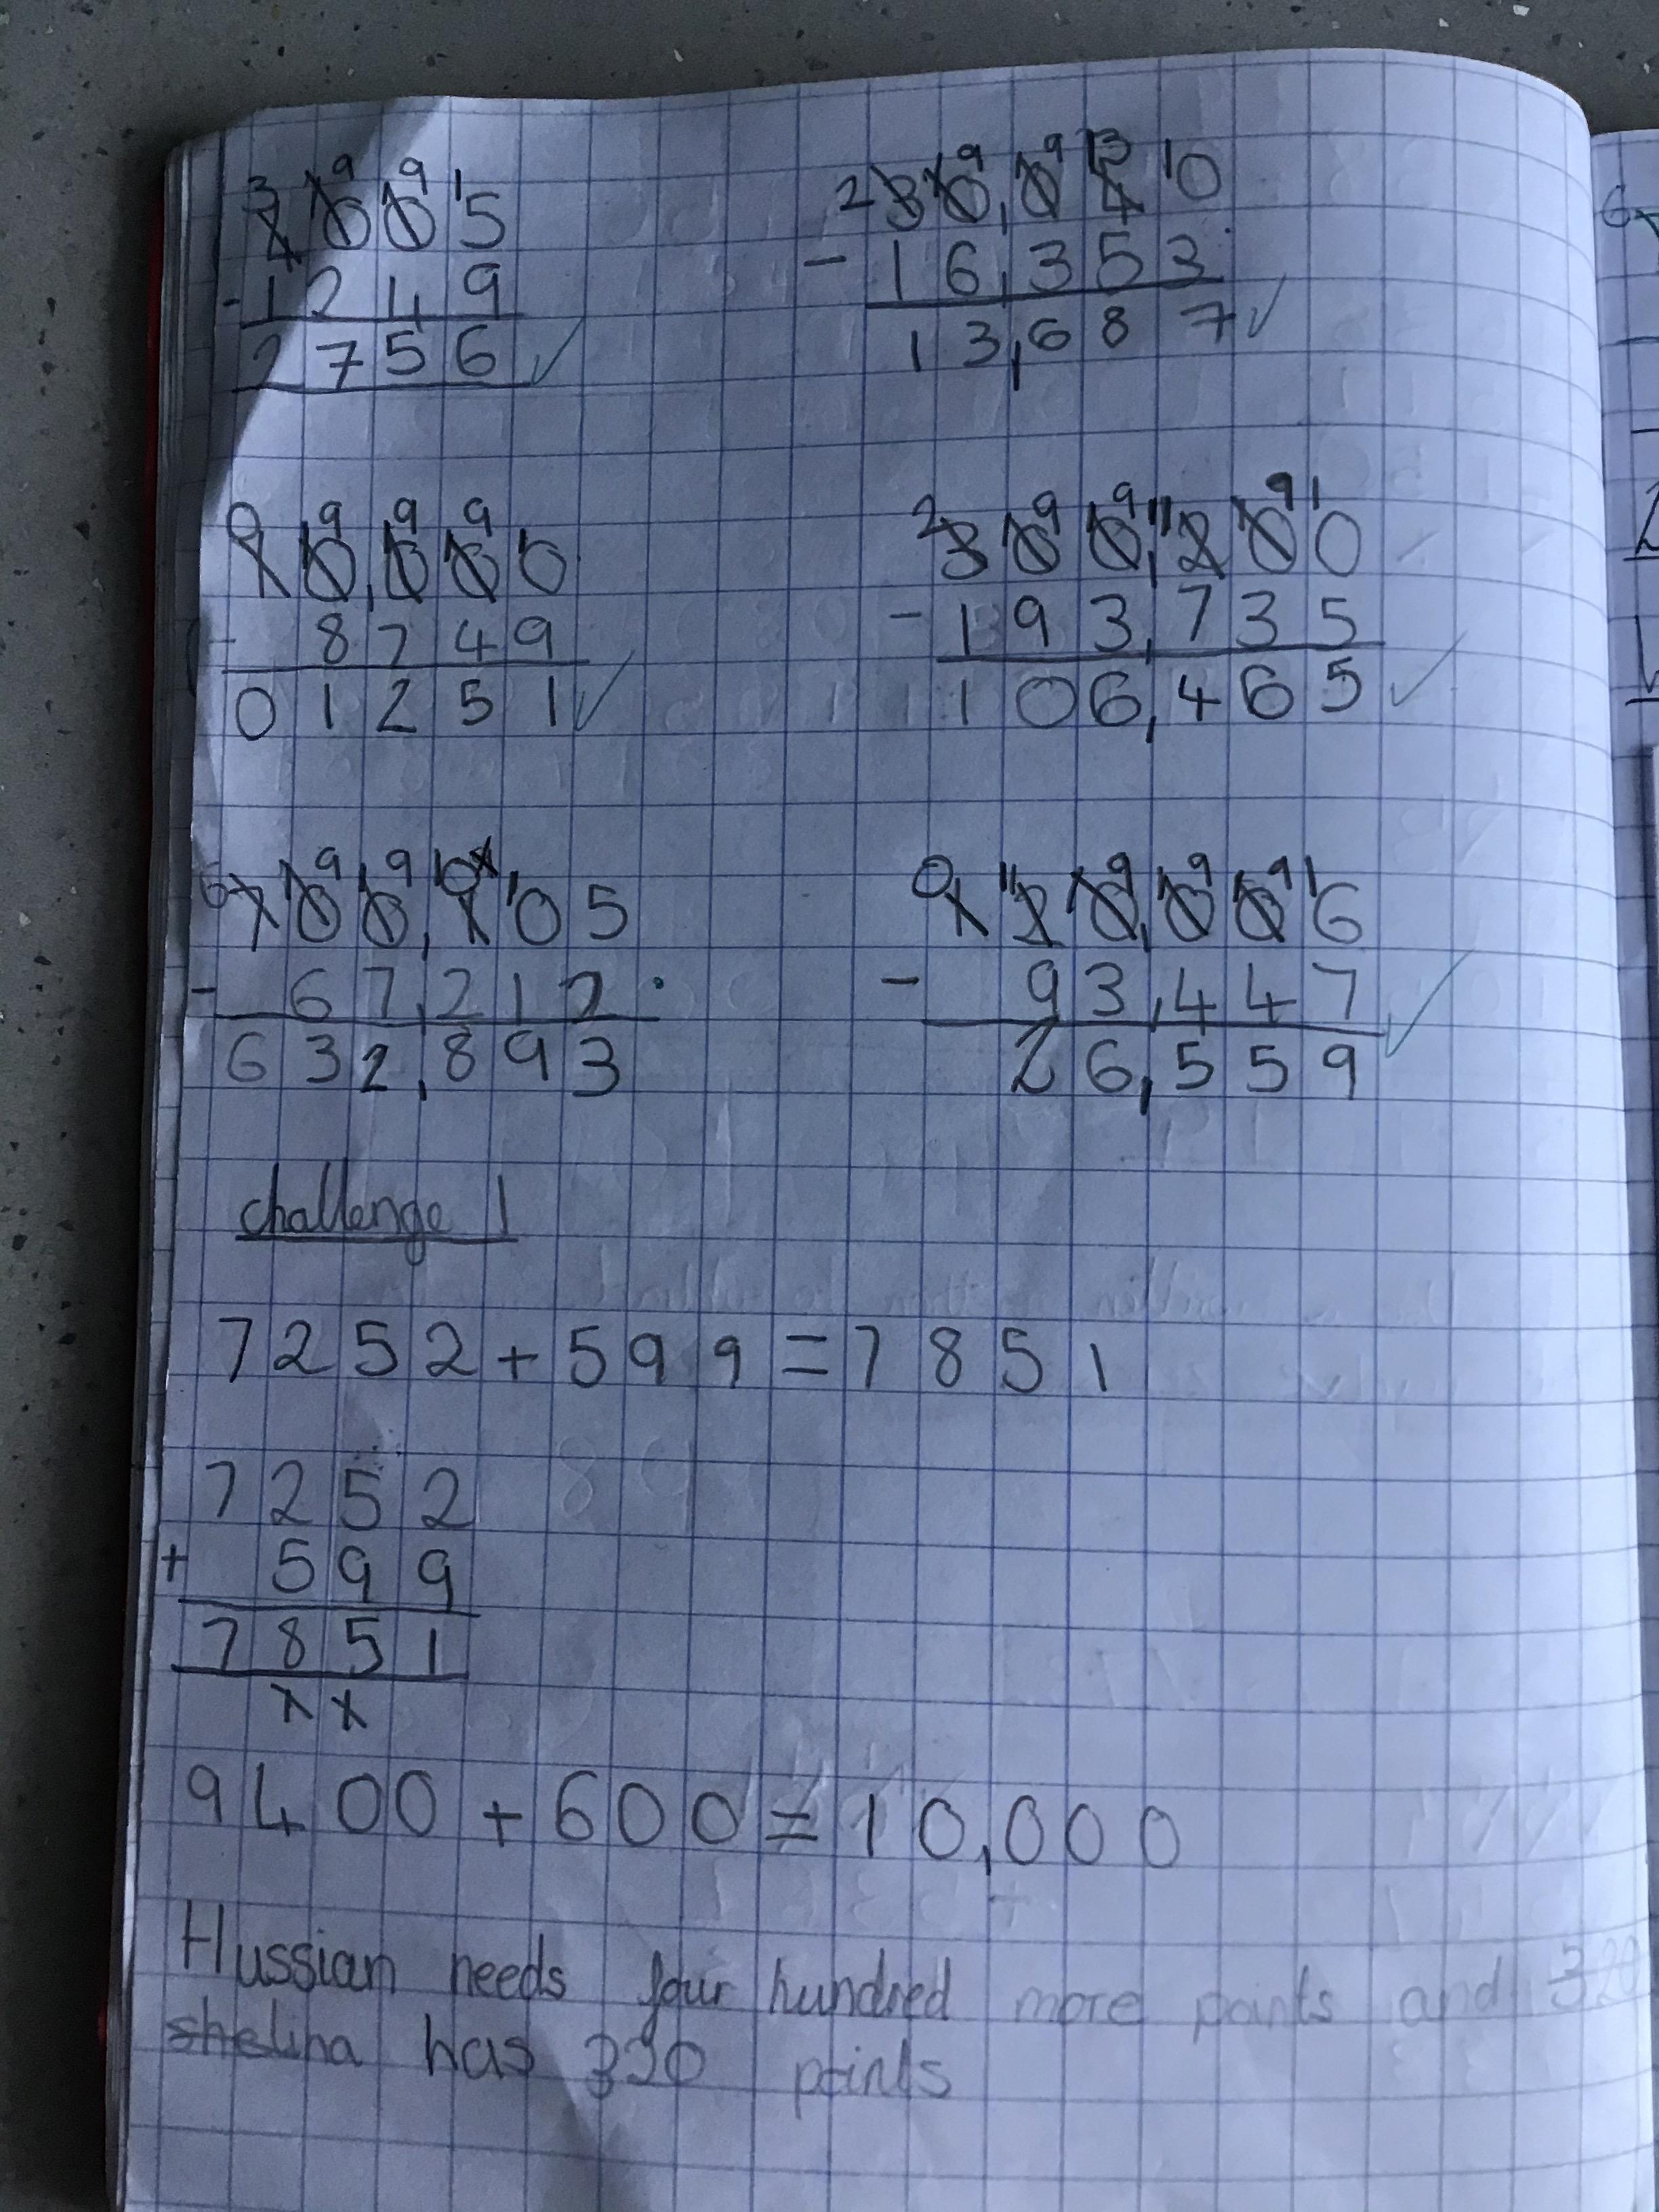 4005
- 1249
2756 ✓
30,040
- 16,353
13,687 ✓
10,000
- 8749
01251 ✓
300,200
- 193,735
106,465 ✓
700,105
- 67,212
632,893
120,006
- 93,447
26,559 ✓
challenge 1
7252 + 599 = 7851
7252
+ 599
7851
9400 + 600 = 10,000
Hussian needs four hundred more points and
shelina has 320 points